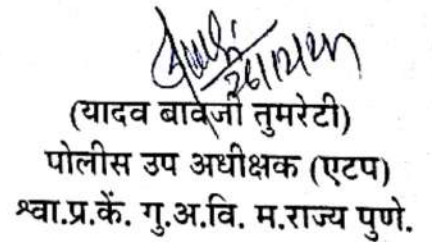 (यादव बावजी तुमरेटी)
पोलीस उप अधीक्षक (एटप)
श्वा.प्र.कें. गु.अ.वि. म.राज्य पुणे.